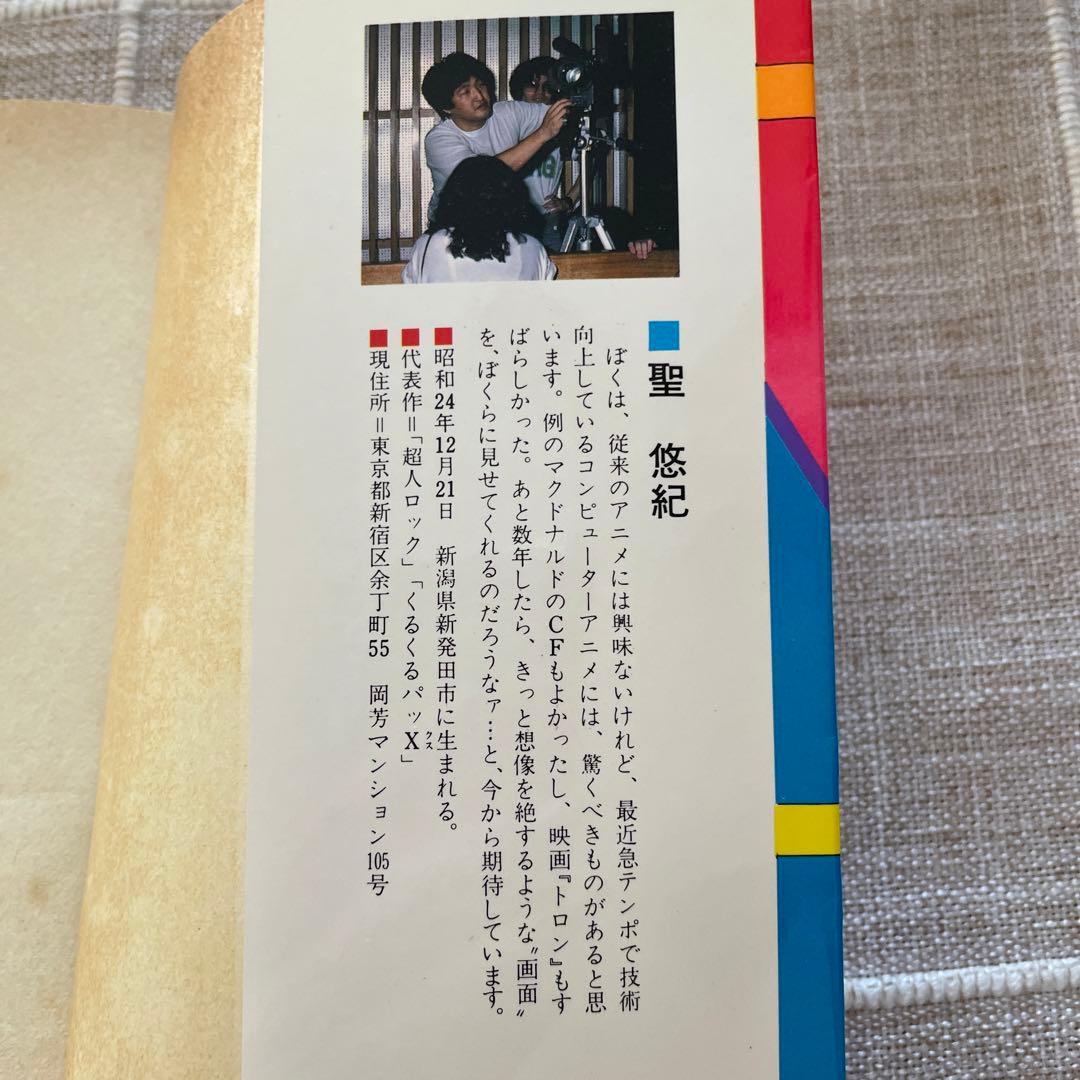 ■聖 悠紀
ぼくは、従来のアニメには興味ないけれど、最近急テンポで技術
向上しているコンピューターアニメには、驚くべきものがあると思
います。例のマクドナルドのCFもよかったし、映画『トロン』もす
ばらしかった。あと数年したら、きっと想像を絶するような〝画面〟
を、ぼくらに見せてくれるのだろうなァ…と、今から期待しています。
■昭和24年12月21日 新潟県新発田市に生まれる。
■代表作＝「超人ロック」「くるくるパッX」
クス
■現住所＝東京都新宿区余丁町55 岡芳マンション105号